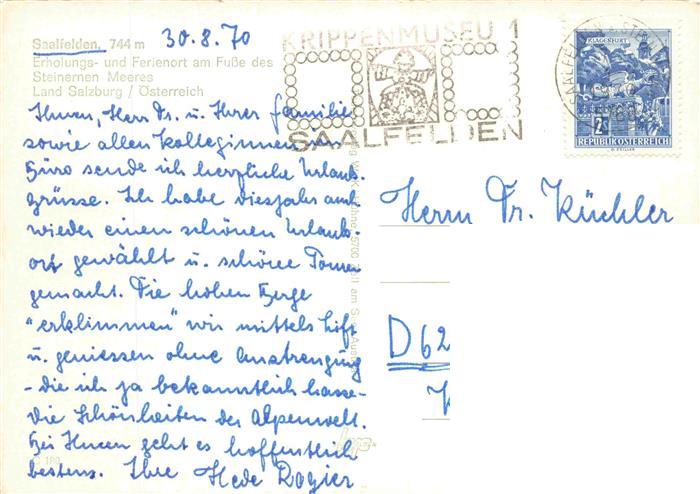 Saalfelden, 744 m
30.8.70
Erholungs- und Ferienort am Fuße des
Steinernen Meeres
Land Salzburg / Österreich
KRIPPENMUSEUM
SAALFELDEN
KLAGENFURT
2
REPUBLIK ÖSTERREICH
Ihnen, Herr Dr. u. Ihrer Familie
sowie allen Kolleginnen im
Büro sende ich herzliche Urlaubs-
grüsse. Ich habe diesjahr auch
wieder einen schönen Urlaubs-
ort gewählt u. schöne Touren
gemacht. Die hohen Berge
"erklimmen" wir mittels Lift
u. geniessen ohne Anstrengung
- die ich ja bekanntlich hasse -
die Schönheiten der Alpenwelt.
Bei Ihnen geht es hoffentlich
bestens. Ihre Hede Rogier
Herrn Dr. Küchler
D 62